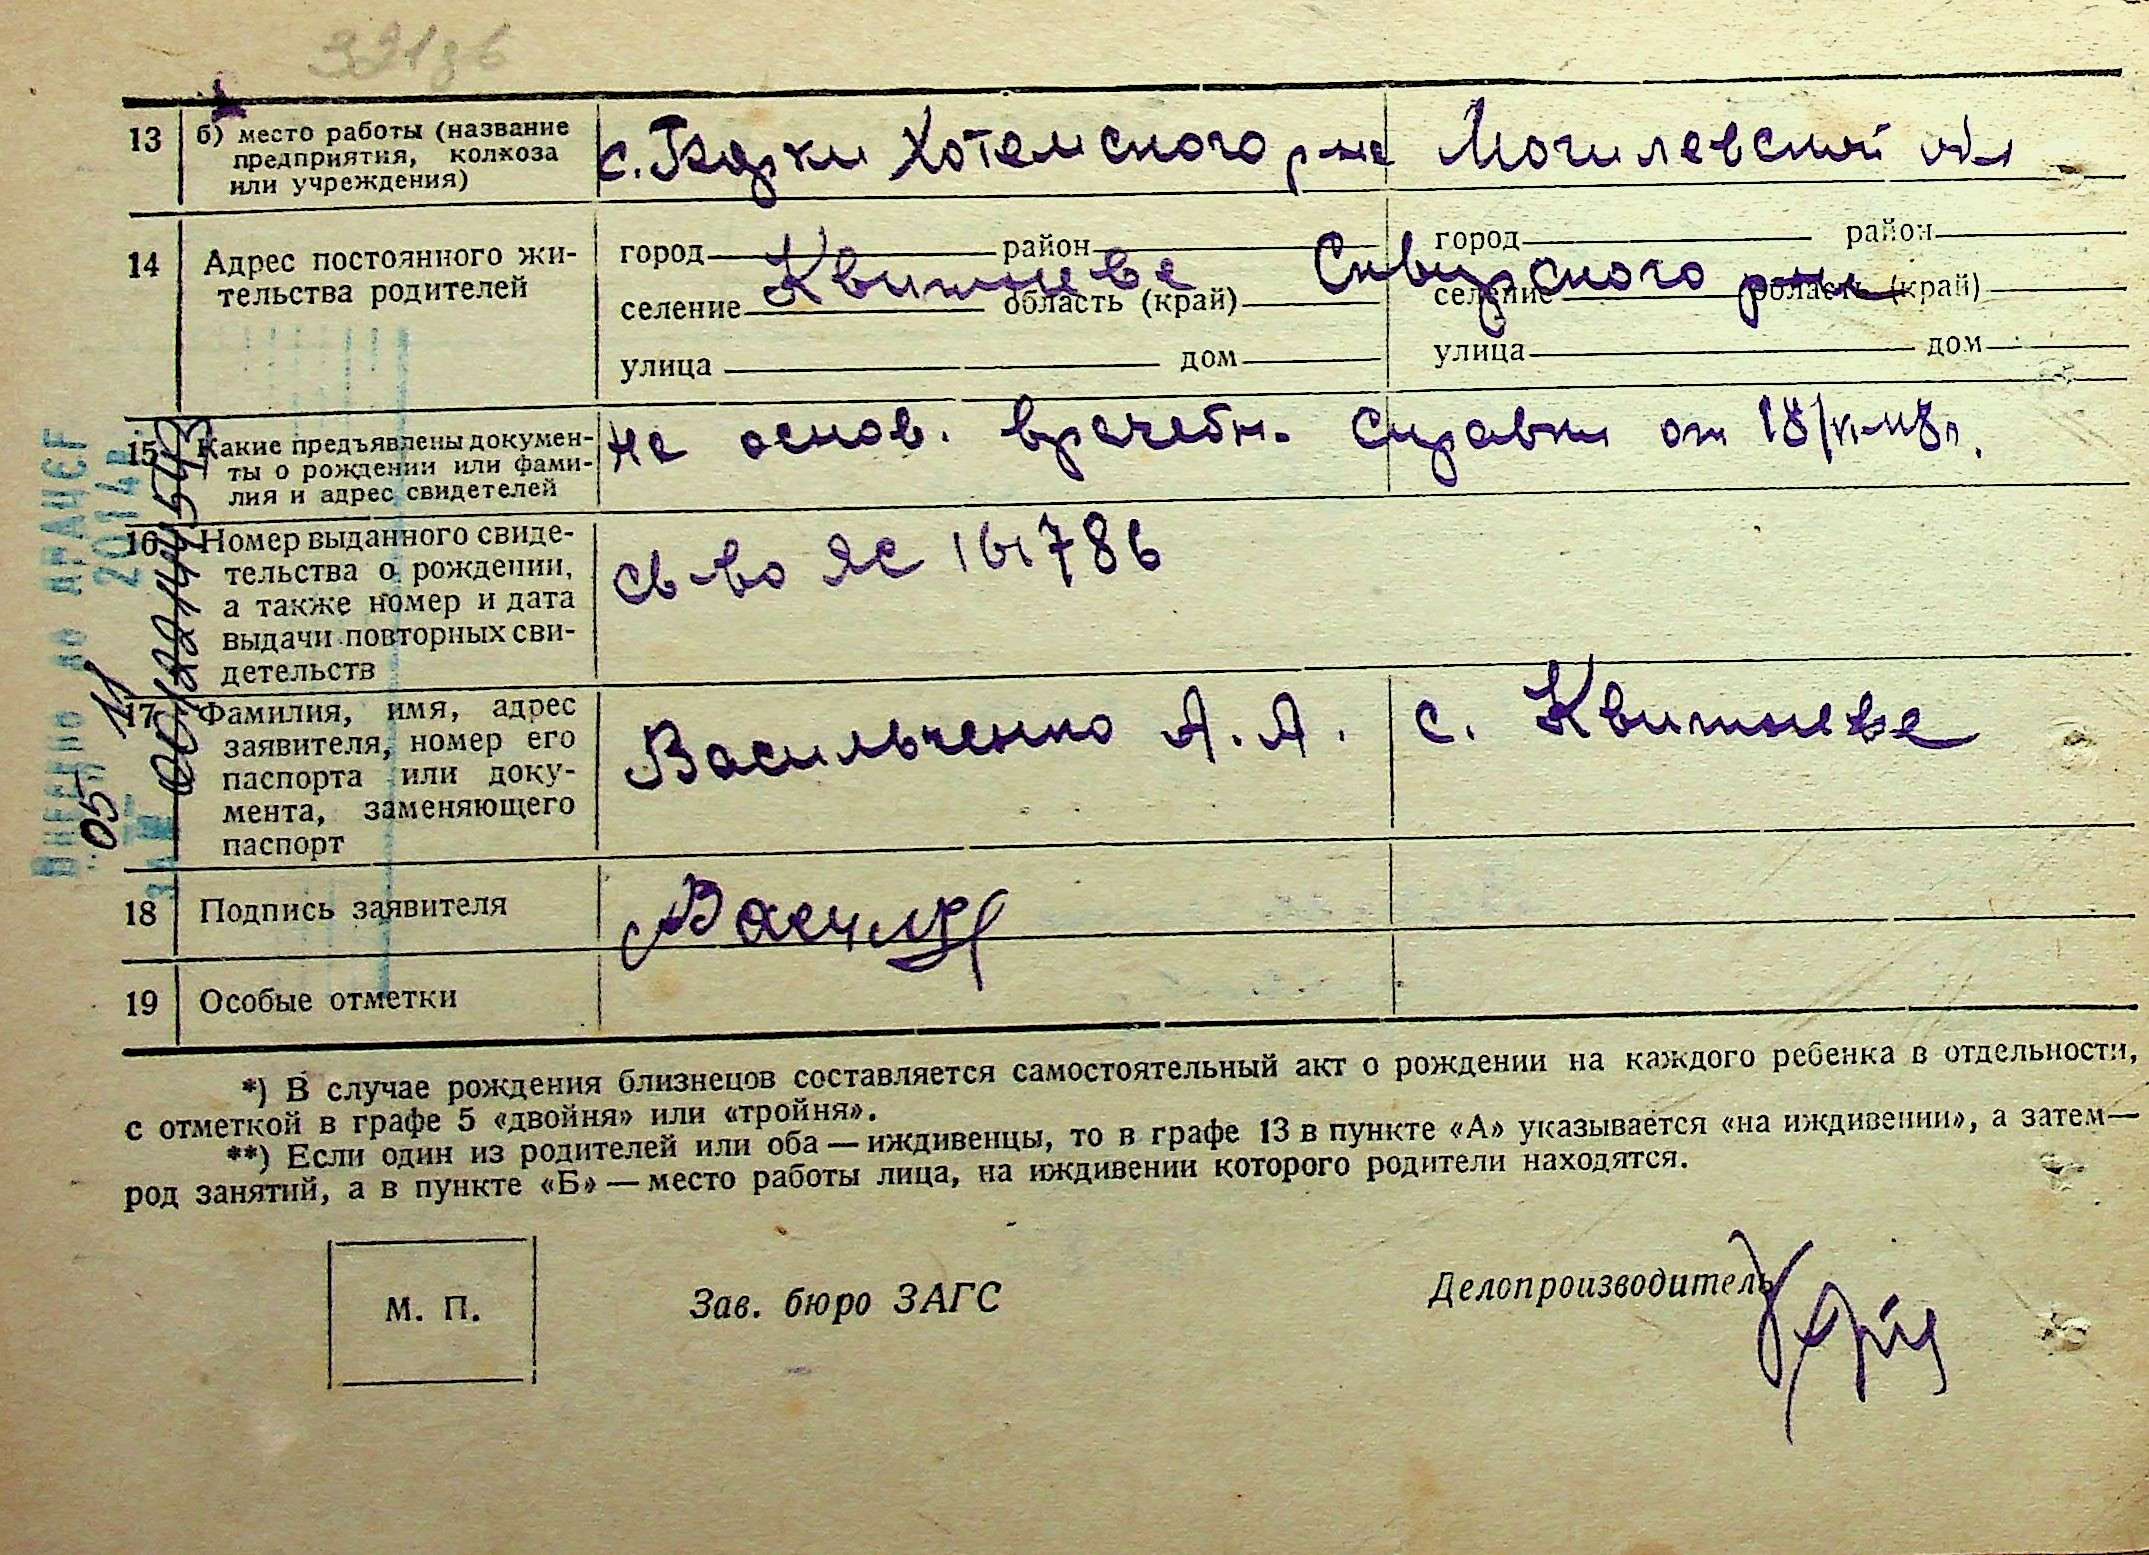 13 б) место работы (название
предприятия, колхоза
или учреждения)
Хотемского р-на Могилевской обл
14 Адрес постоянного жи-
тельства родителей
город район город район
Сквирского
селение область (край) селение область (край)
улица дом улица дом
15 Какие предъявлены докумен-
ты о рождении или фами-
лия и адрес свидетелей
на основ. врачебн. справки от 18/
16 Номер выданного свиде-
тельства о рождении,
а также номер и дата
выдачи повторных сви-
детельств
св-во ЯС 161786
17 Фамилия, имя, адрес
заявителя, номер его
паспорта или доку-
мента, заменяющего
паспорт
Васильченко А. А. с.
18 Подпись заявителя
19 Особые отметки
*) В случае рождения близнецов составляется самостоятельный акт о рождении на каждого ребенка в отдельности,
с отметкой в графе 5 «двойня» или «тройня».
**) Если один из родителей или оба — иждивенцы, то в графе 13 в пункте «А» указывается «на иждивении», а затем —
род занятий, а в пункте «Б» — место работы лица, на иждивении которого родители находятся.
М. П. Зав. бюро ЗАГС Делопроизводитель